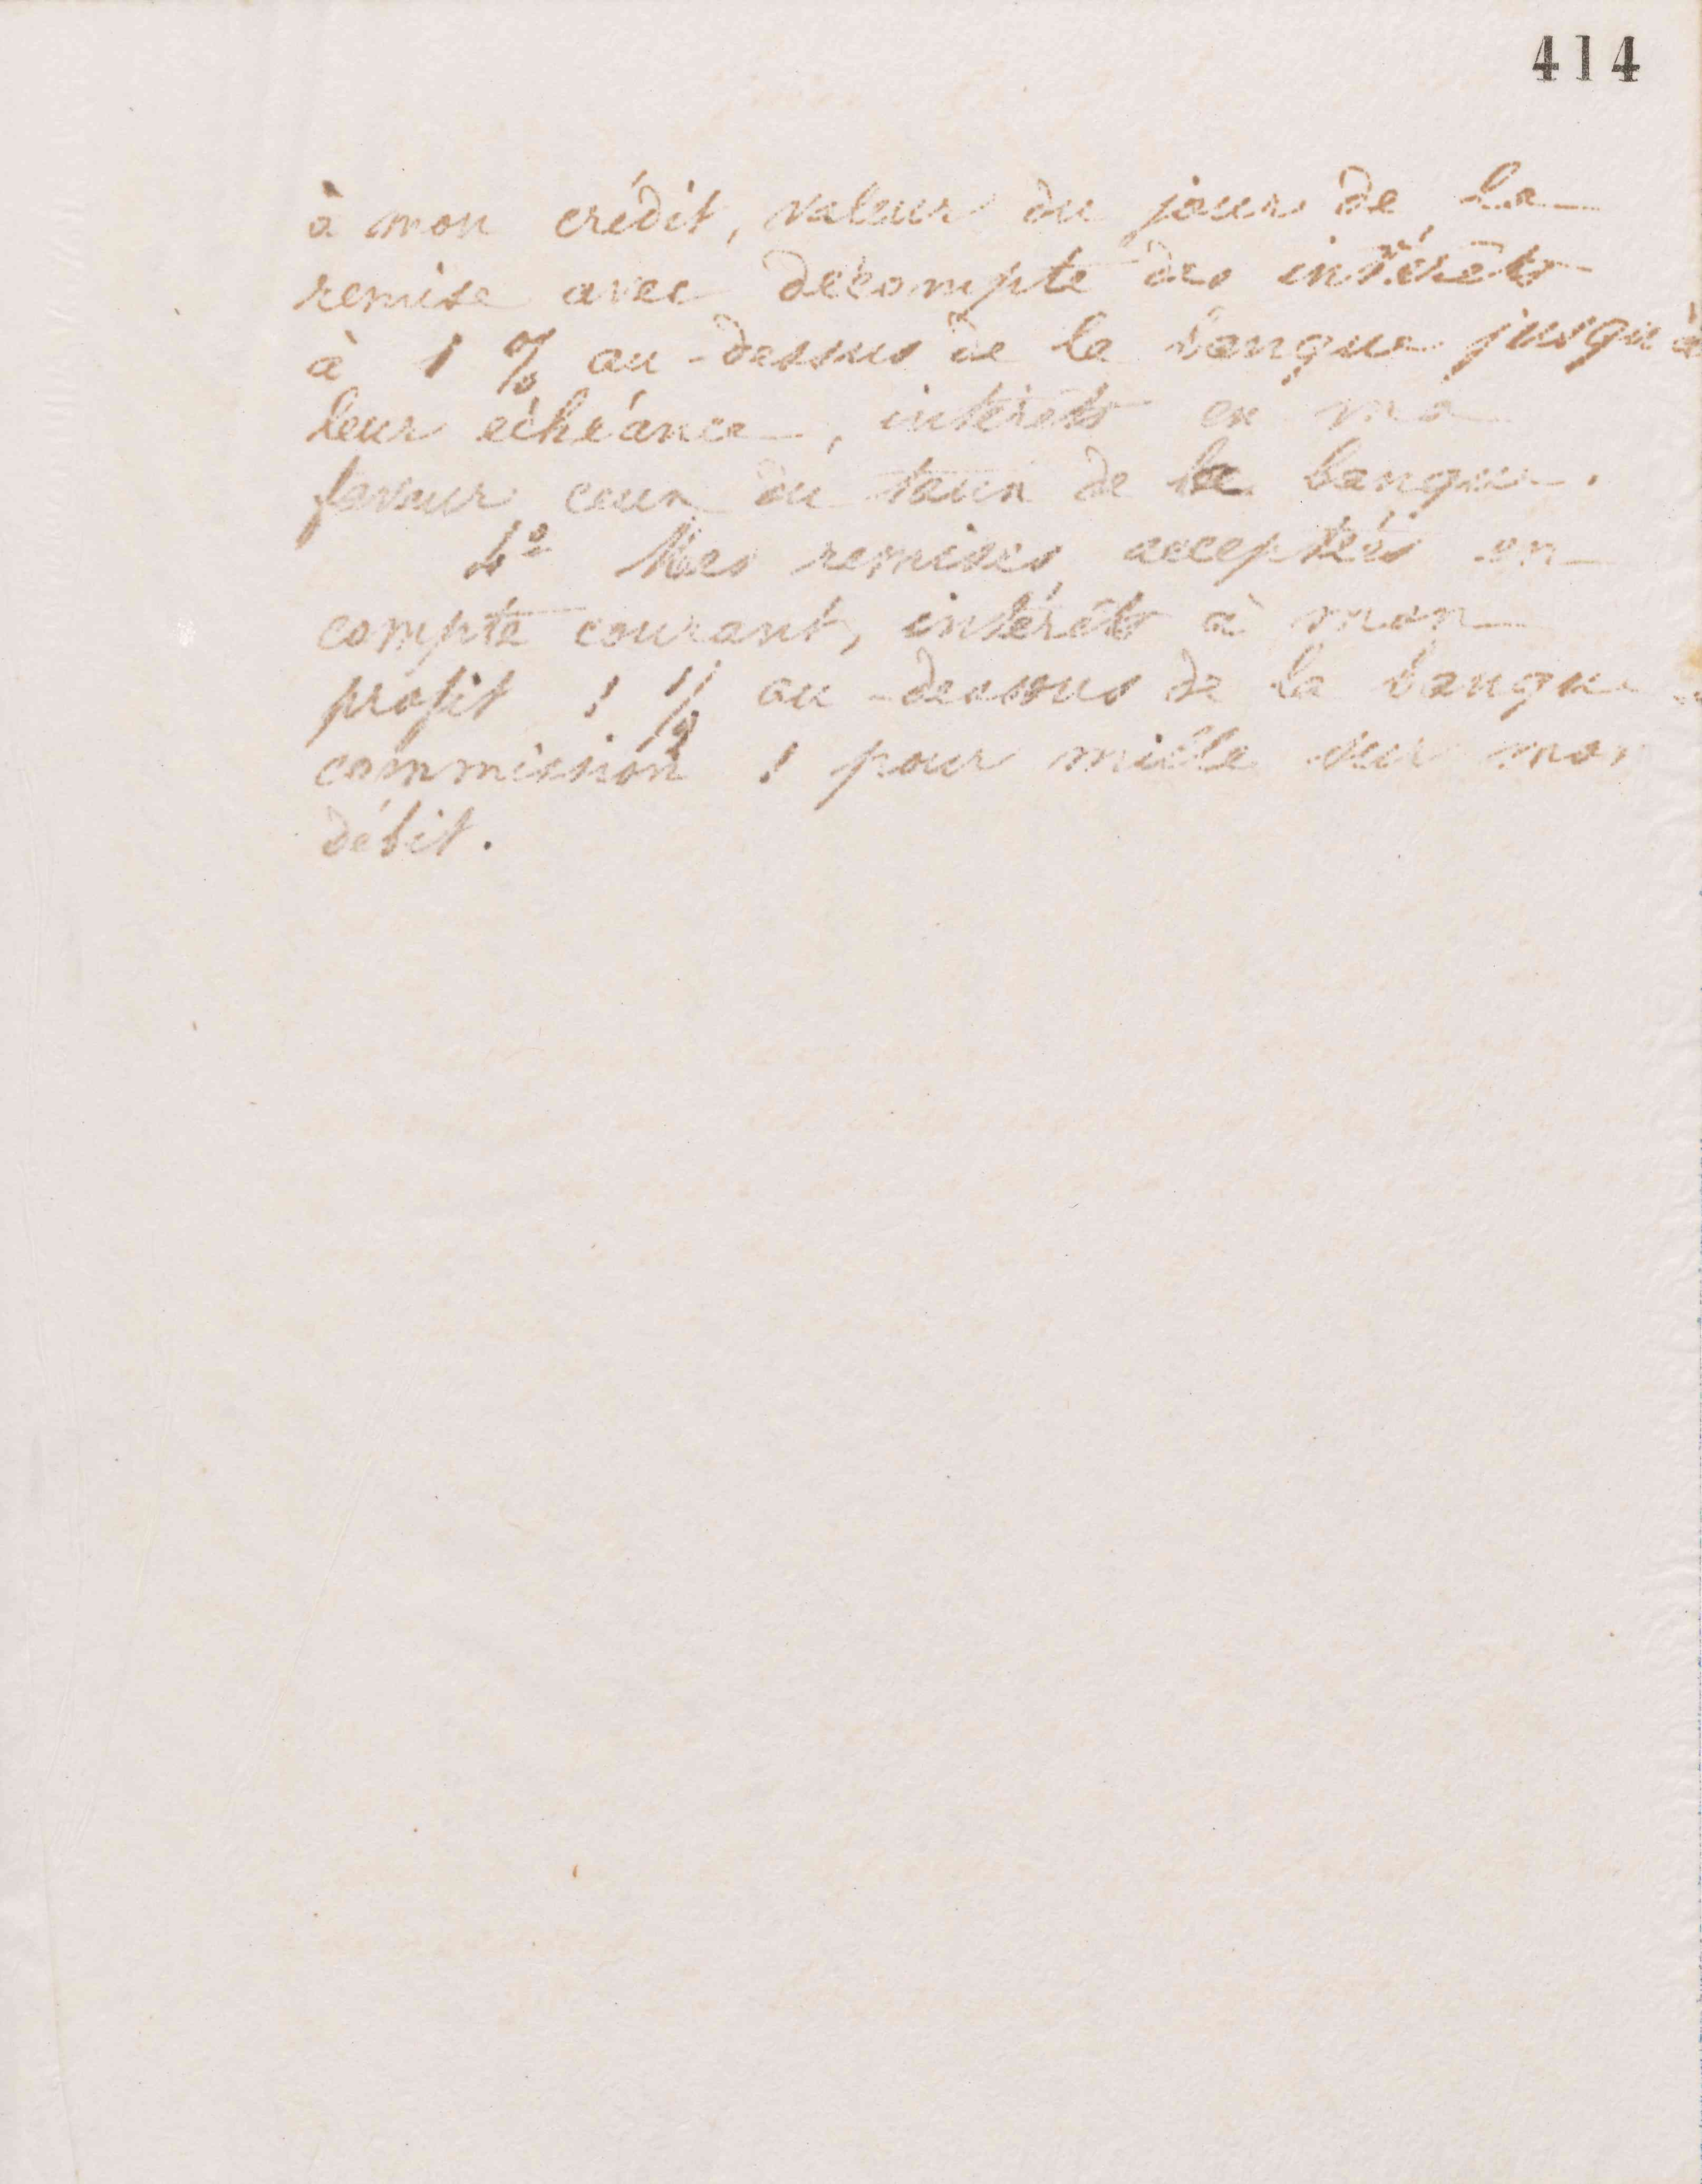 414
à mon crédit, valeur du jour de la
remise avec décompte des intérêts
à 1 % au-dessus de la banque jusqu'à
leur échéance, intérêts en ma
faveur ceux du taux de la banque.
4º Mes remises acceptées en
compte courant, intérêts à mon
profit 1 % au-dessous de la banque
commission 1 pour mille sur mon
débit.